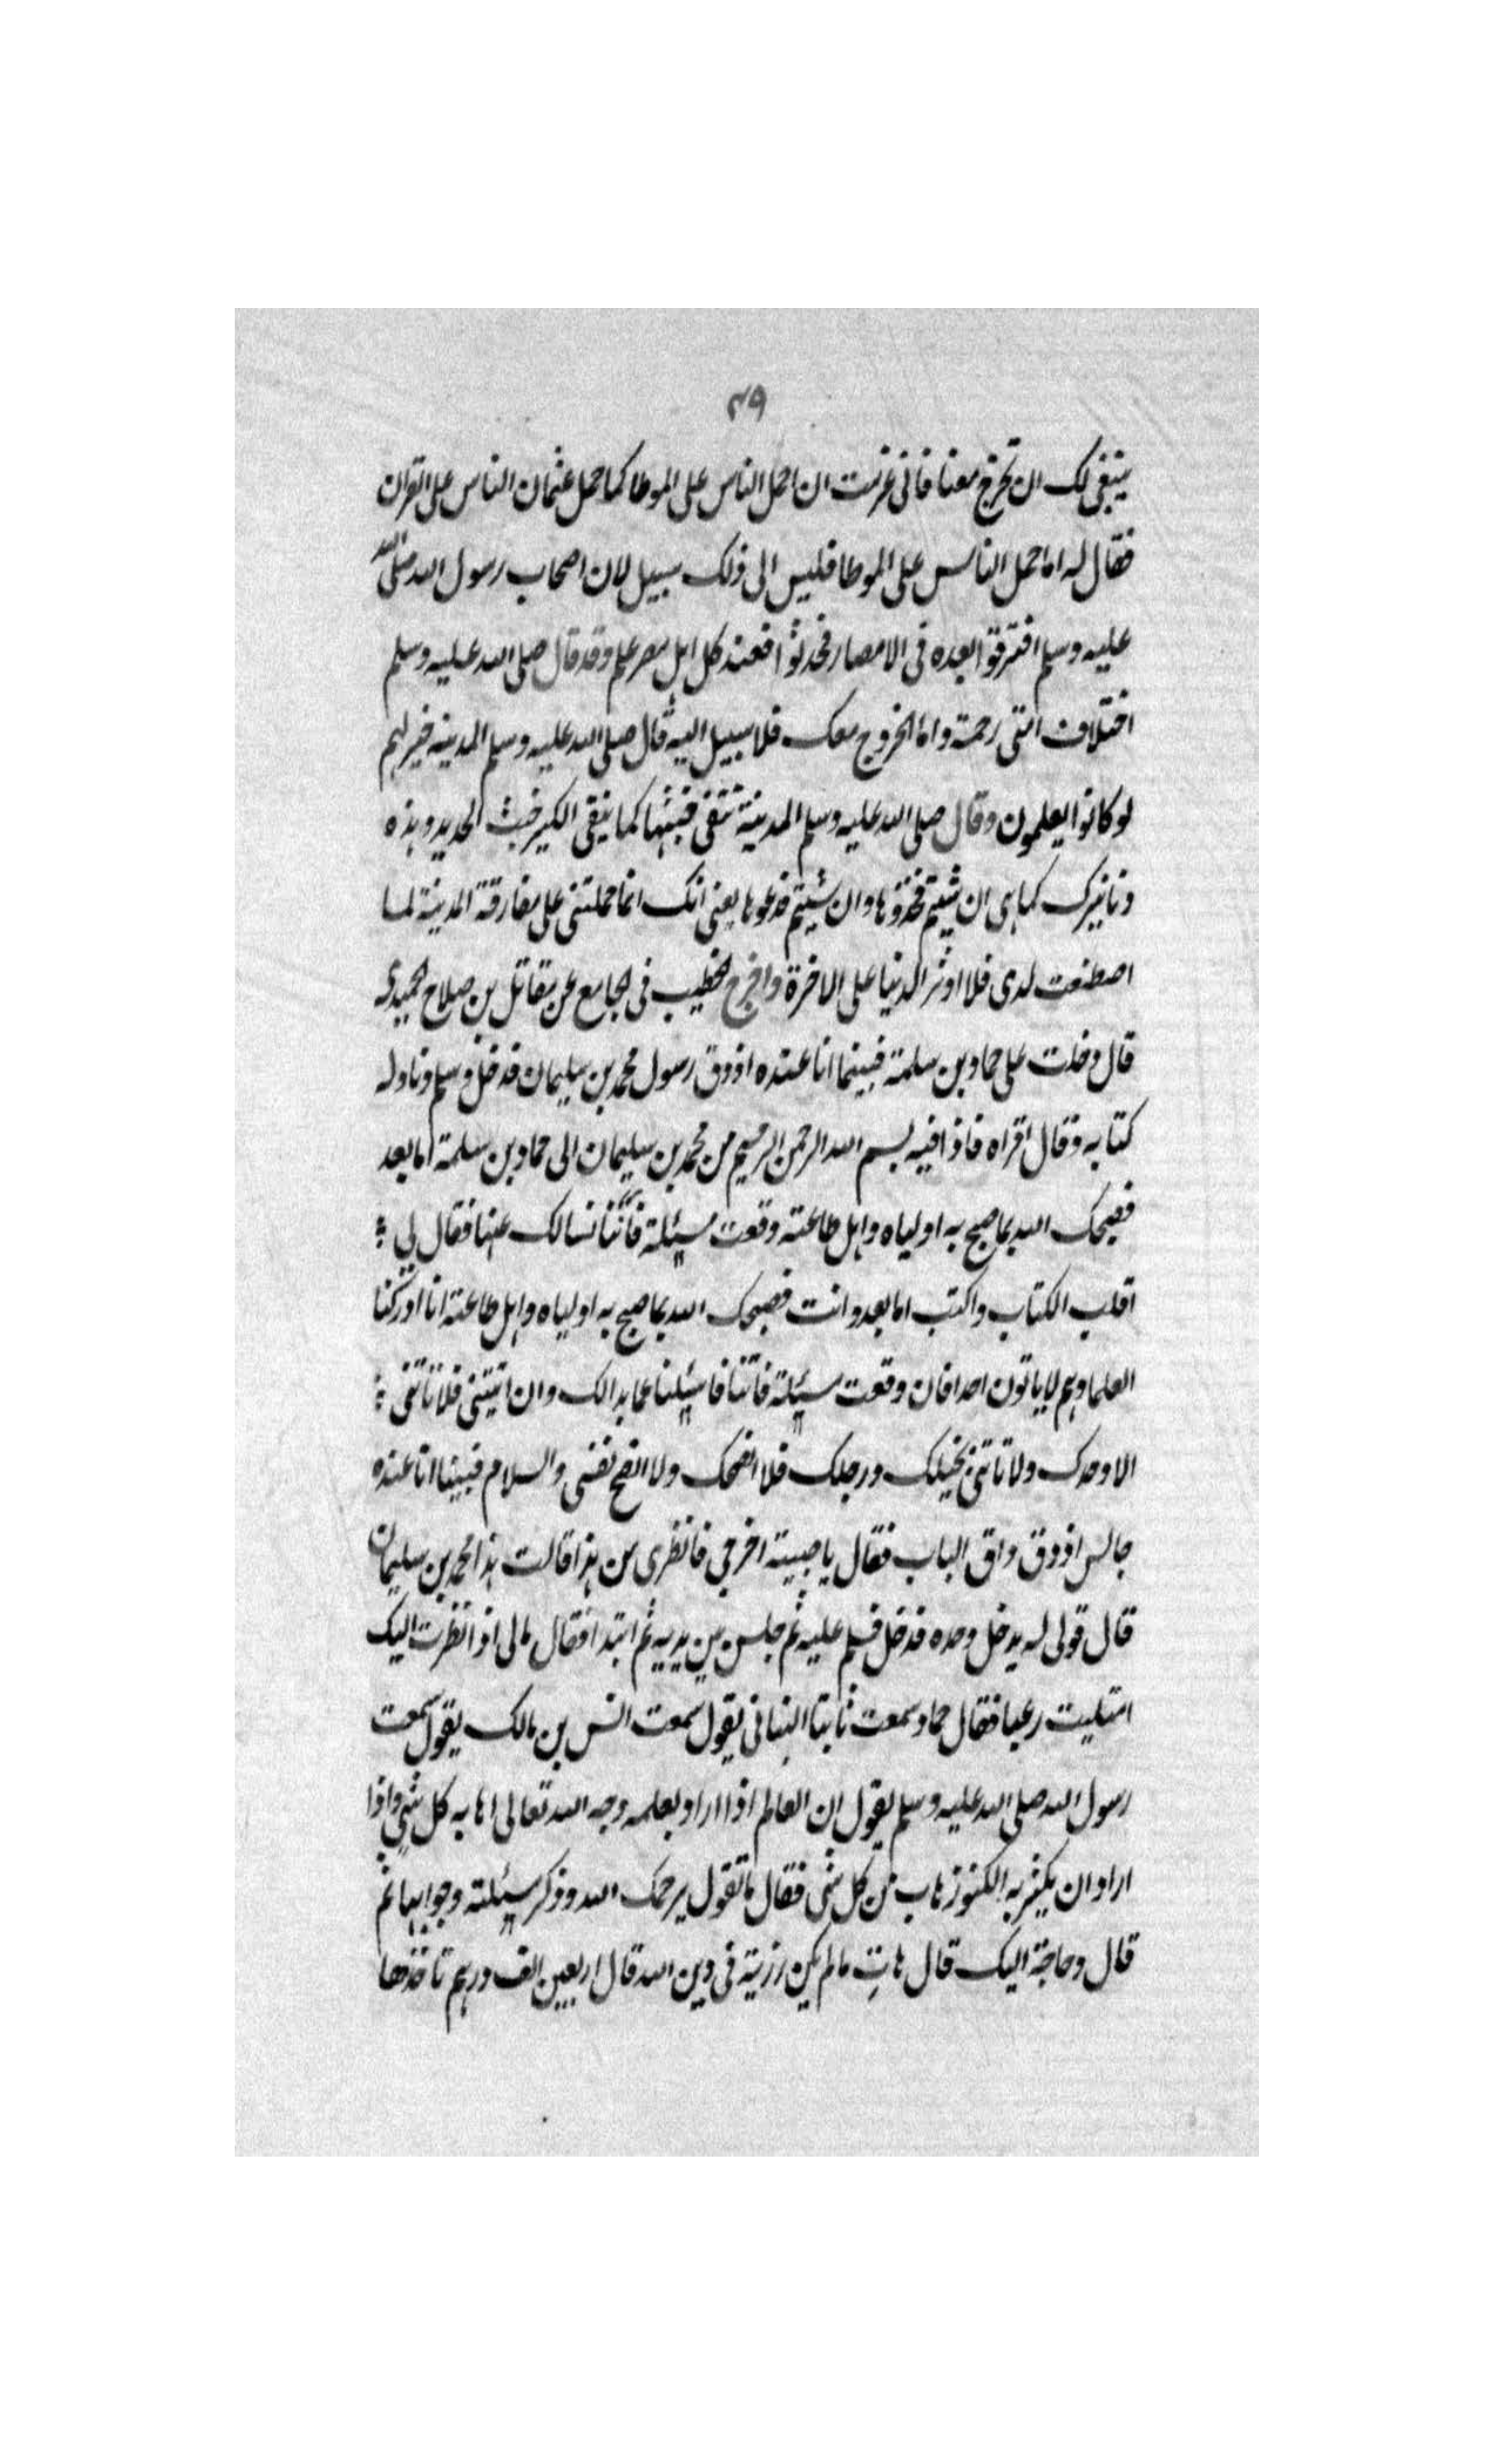 ٣٩
ينبغى لك ان تخرج معنا فانى عزمت ان احمل الناس على الموطا كما حمل عثمان الناس على القران
فقال له اما حمل الناس على الموطا فليس الى ذلك سبيل لان اصحاب رسول الله صلى الله
عليه وسلم افترقوا بعده فى الامصار فحدثوا فعند كل اهل مصر علم وقد قال صلى الله عليه وسلم
اختلاف امتى رحمة واما الخروج معك فلا سبيل اليه قال صلى الله عليه وسلم المدينه خير لهم
لو كانوا يعلمون وقال صلى الله عليه وسلم المدينة تنقى خبثها كما ينقى الكير خبث الحديد وهذه
دنانيرك كما هى ان شيتم فخذوها وان شيتم فدعوها يعنى انك انما حملتنى على مفارقة المدينة لما
اصطنعت لدى فلا اوثر الدنيا على الاخرة واخرج الخطيب فى الجامع عن مقاتل بن صلاح الحميدى
قال دخلت على حماد بن سلمة فبينما انا عنده اذ دق رسول محمد بن سليمان فدخل وسلم وناوله
كتابه وقال اقراه فاذا فيه بسم الله الرحمن الرحيم من محمد بن سليمان الى حماد بن سلمة اما بعد
فصبحك الله بما صبح به اولياه واهل طاعته وقعت مسئلة فأتنا نسالك عنها فقال لى
اقلب الكتاب واكتب اما بعد وانت فصبحك الله بما صبح به اولياه واهل طاعته انا ادركنا
العلما وهم لا ياتون احدا فان وقعت مسئلة فاتنا فاسئلنا عما بدا لك وان اتيتنى فلا تاتنى
الا وحدك ولا تاتنى بخيلك ورجلك فلا انصحك ولا انصح نفسى والسلام فبينا انا عنده
جالس اذ دق داق الباب فقال يا صبية اخرجى فانظرى من هذا قالت هذا محمد بن سليمان
قال قولى له يدخل وحده فدخل فسلم عليه ثم جلس بين يديه ثم ابتدا فقال مالى اذا نظرت اليك
امتليت رعبا فقال حماد سمعت ثابتا البنانى يقول سمعت انس بن مالك يقول سمعت
رسول الله صلى الله عليه وسلم يقول ان العالم اذا اراد بعلمه وجه الله تعالى هابه كل شى واذا
اراد ان يكثر به الكنوز هاب من كل شى فقال ما تقول يرحمك الله وذكر مسئلته وجوابها ثم
قال وحاجة اليك قال هاتِ مالم يكن رزية فى دين الله قال اربعين الف درهم تاخذها